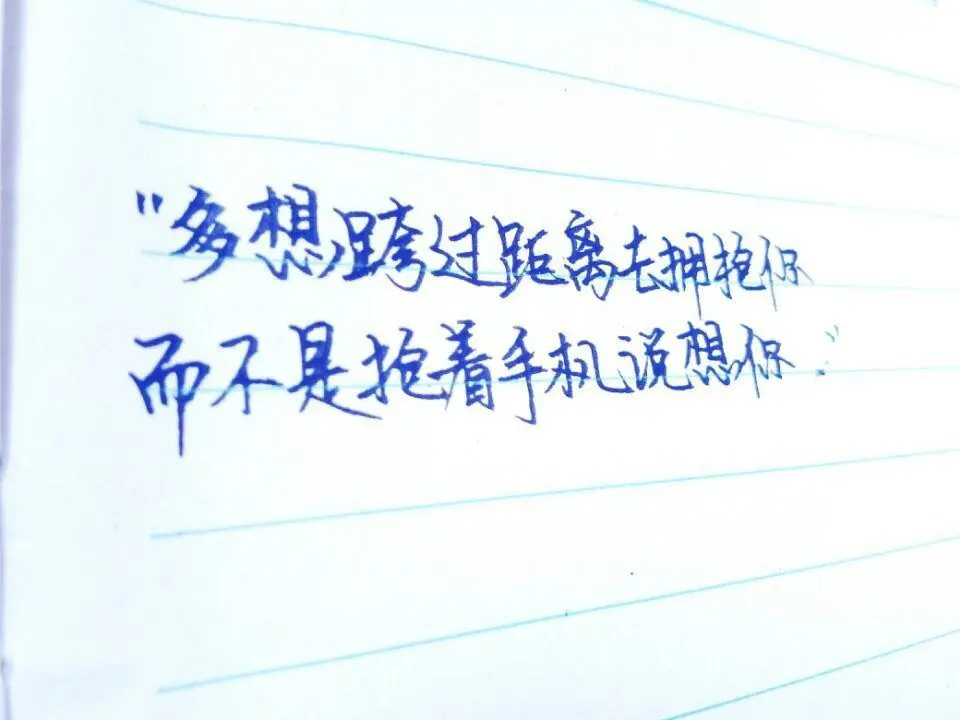 "多想跨过距离去拥抱你
而不是抱着手机说想你."